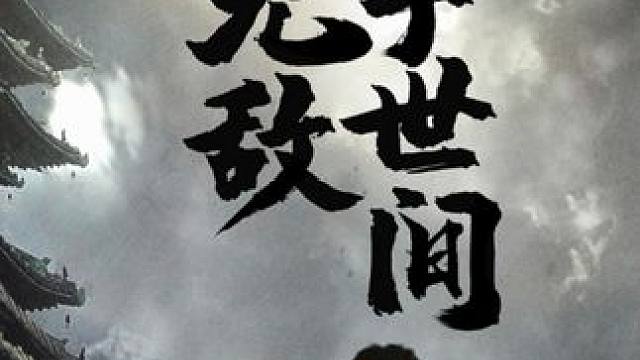 无敌
于世间